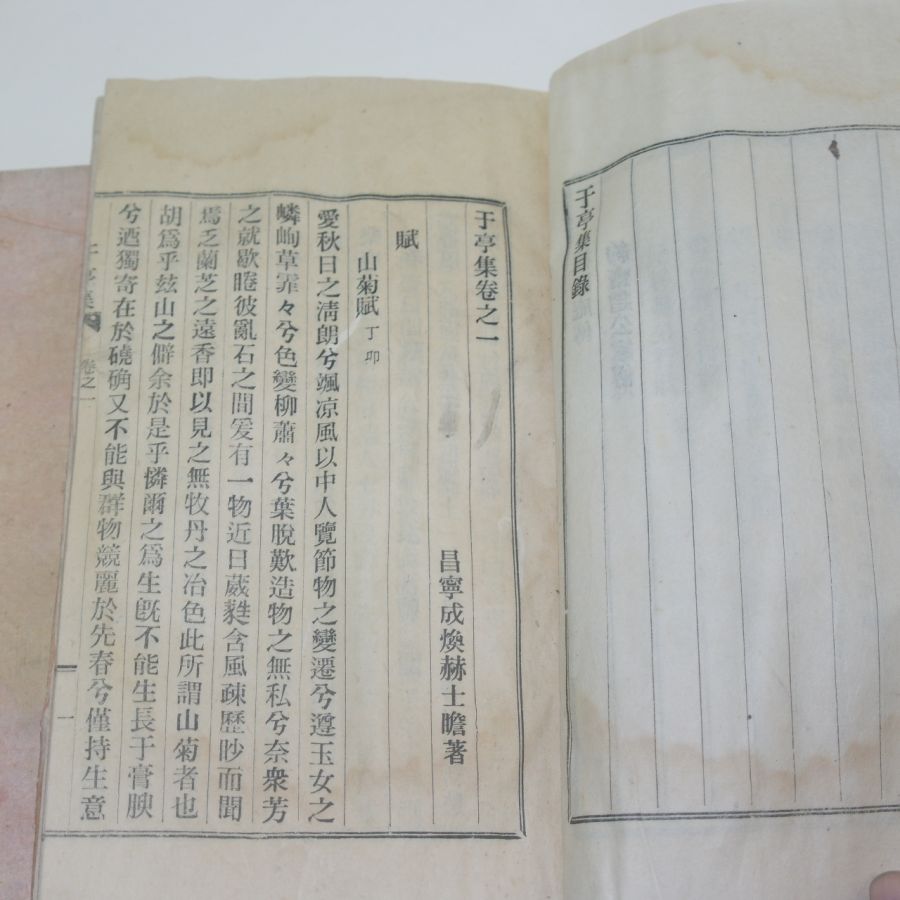 于亭集目錄
于亭集卷之一
昌寧成煥赫士瞻著
賦
山菊賦 丁卯
愛秋日之淸朗兮颯凉風以中人覽節物之變遷兮遵玉女之
嶙峋草霏々兮色變柳蕭々兮葉脫歎造物之無私兮奈衆芳
之就歇睠彼亂石之間爰有一物近日葳蕤含風疎歷眇而聞
焉乏蘭芝之遠香卽以見之無牧丹之冶色此所謂山菊者也
胡爲乎玆山之僻余於是乎憐爾之爲生旣不能生長于膏腴
兮迺獨寄在於磽确又不能與群物競麗於先春兮僅持生意
于亭集 卷之一 一